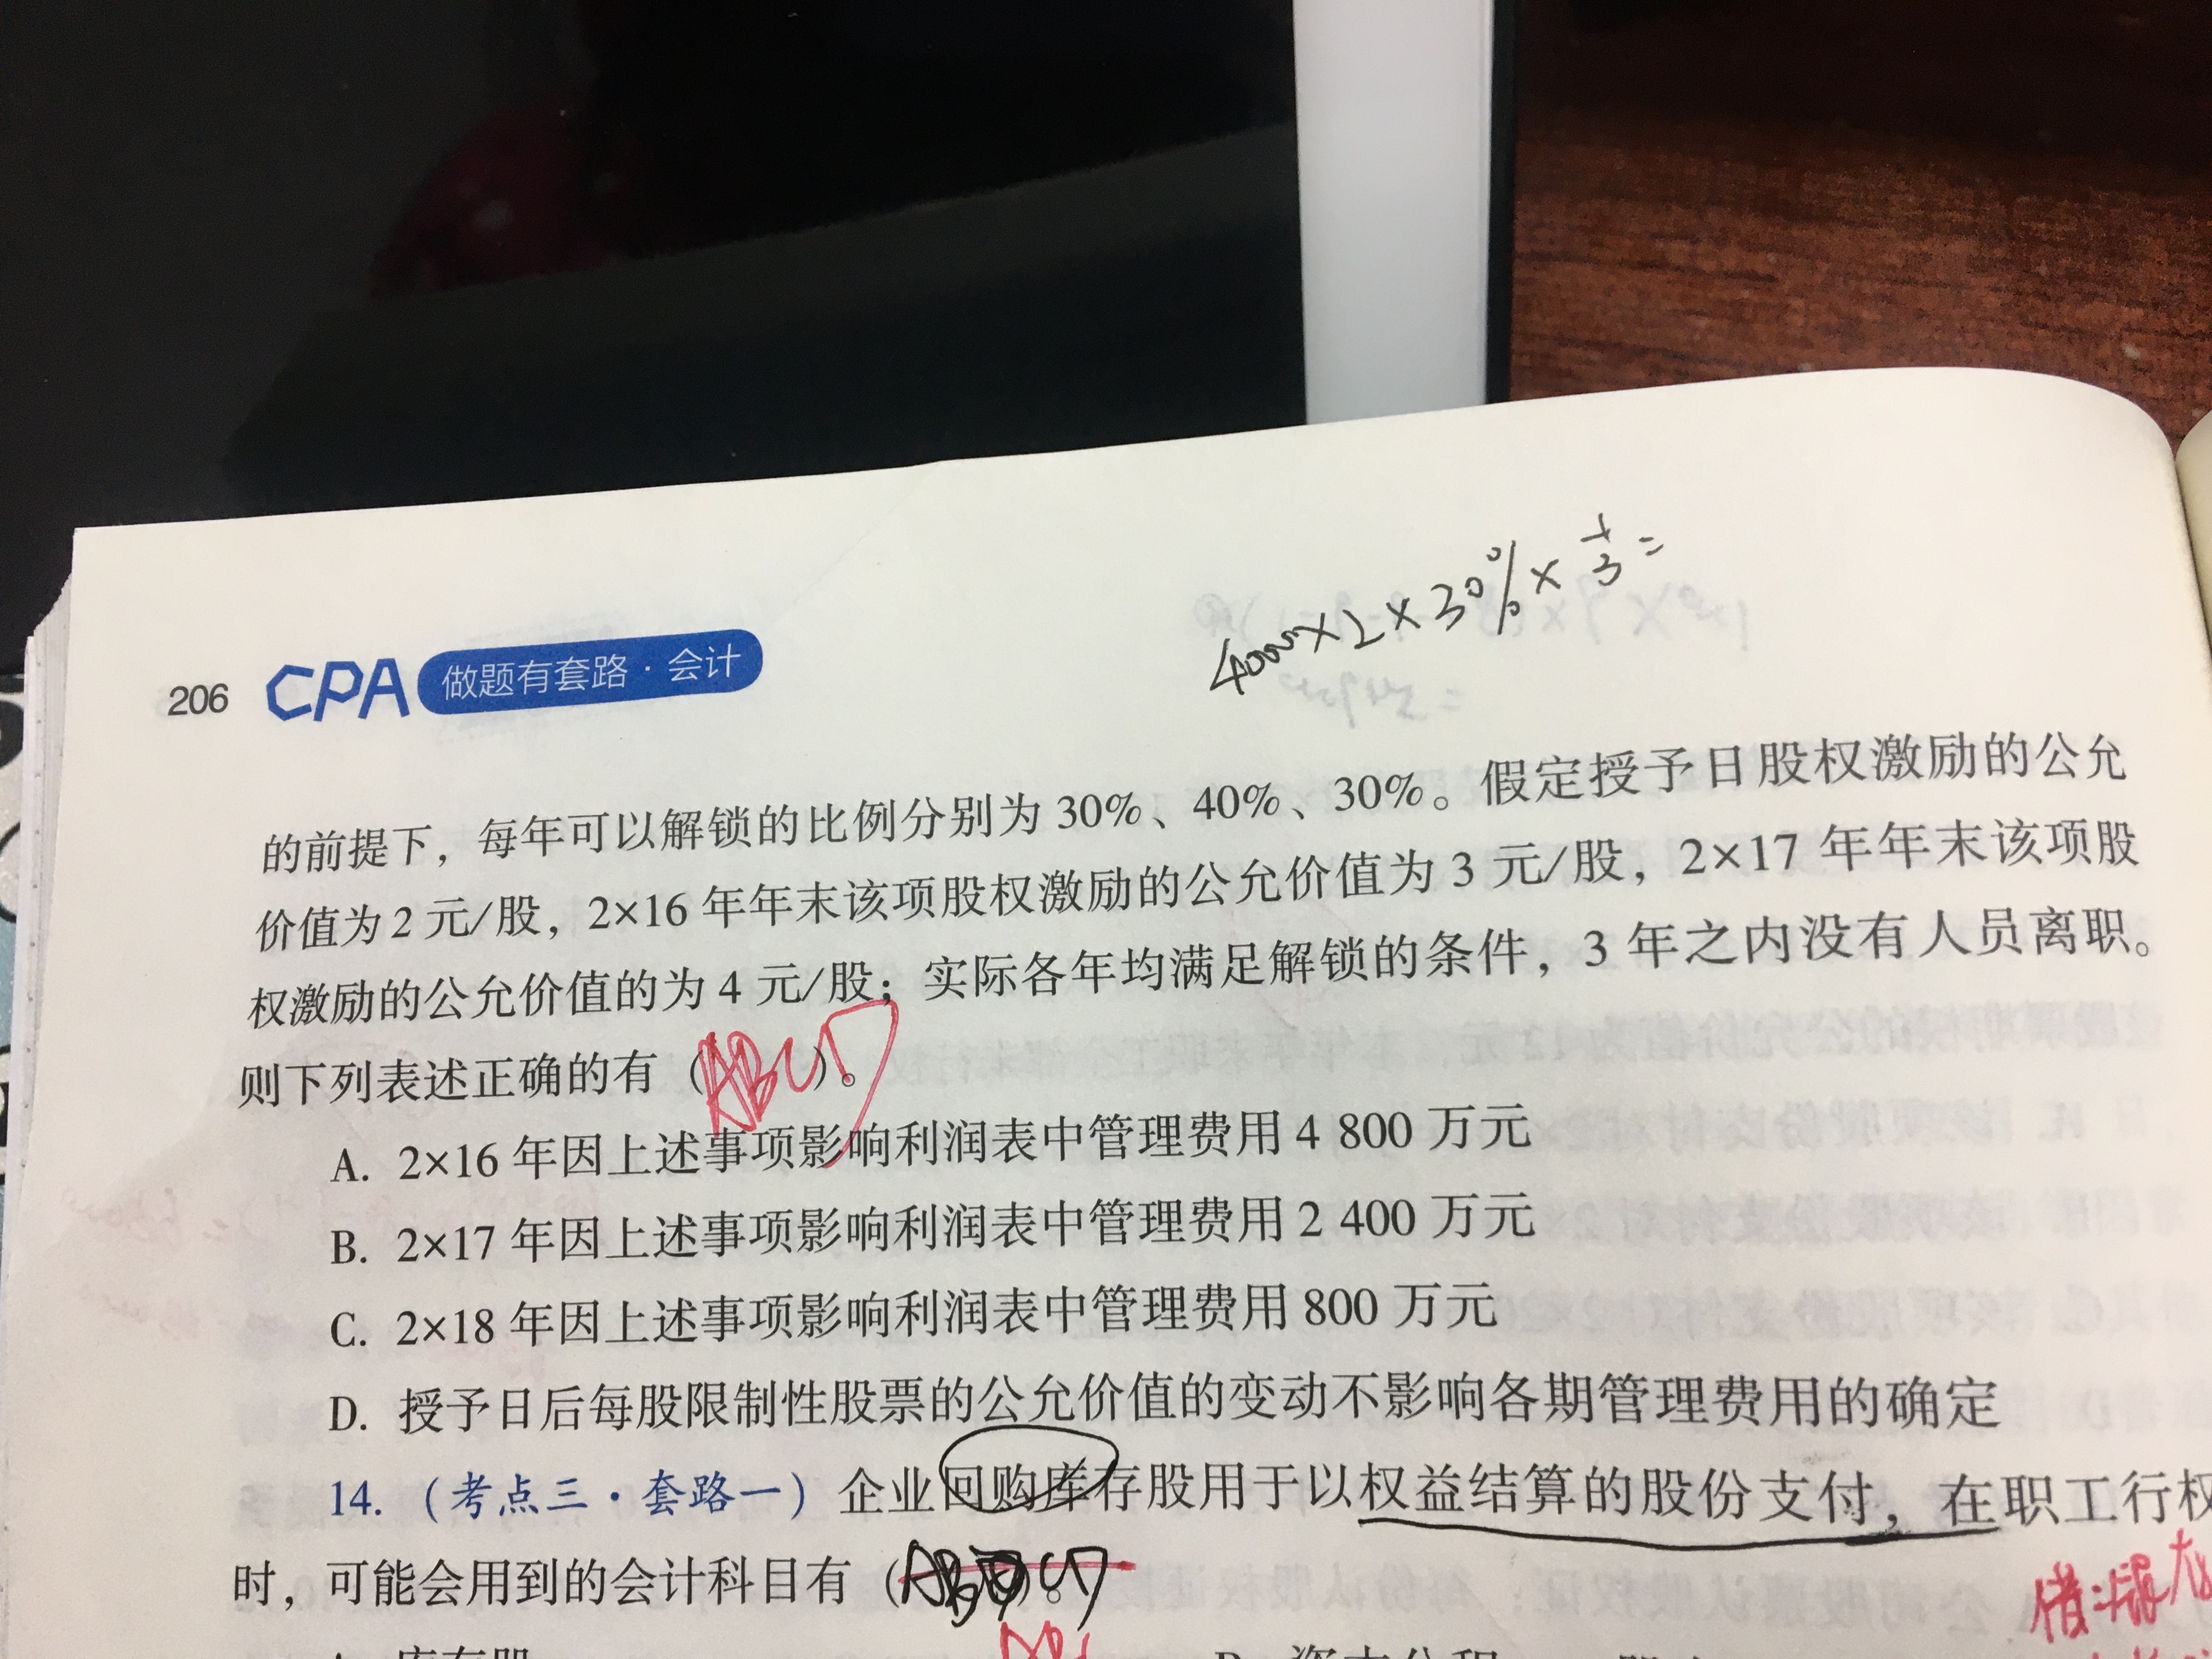 4000×2×30%×1/3=
206 CPA 做题有套路·会计
的前提下，每年可以解锁的比例分别为 30%、40%、30%。假定授予日股权激励的公允
价值为 2 元/股，2×16 年年末该项股权激励的公允价值为 3 元/股，2×17 年年末该项股
权激励的公允价值的为 4 元/股；实际各年均满足解锁的条件，3 年之内没有人员离职。
则下列表述正确的有（ABCD）。
A. 2×16 年因上述事项影响利润表中管理费用 4 800 万元
B. 2×17 年因上述事项影响利润表中管理费用 2 400 万元
C. 2×18 年因上述事项影响利润表中管理费用 800 万元
D. 授予日后每股限制性股票的公允价值的变动不影响各期管理费用的确定
14.（考点三·套路一）企业回购库存股用于以权益结算的股份支付，在职工行权
时，可能会用到的会计科目有（ ）。
借：银